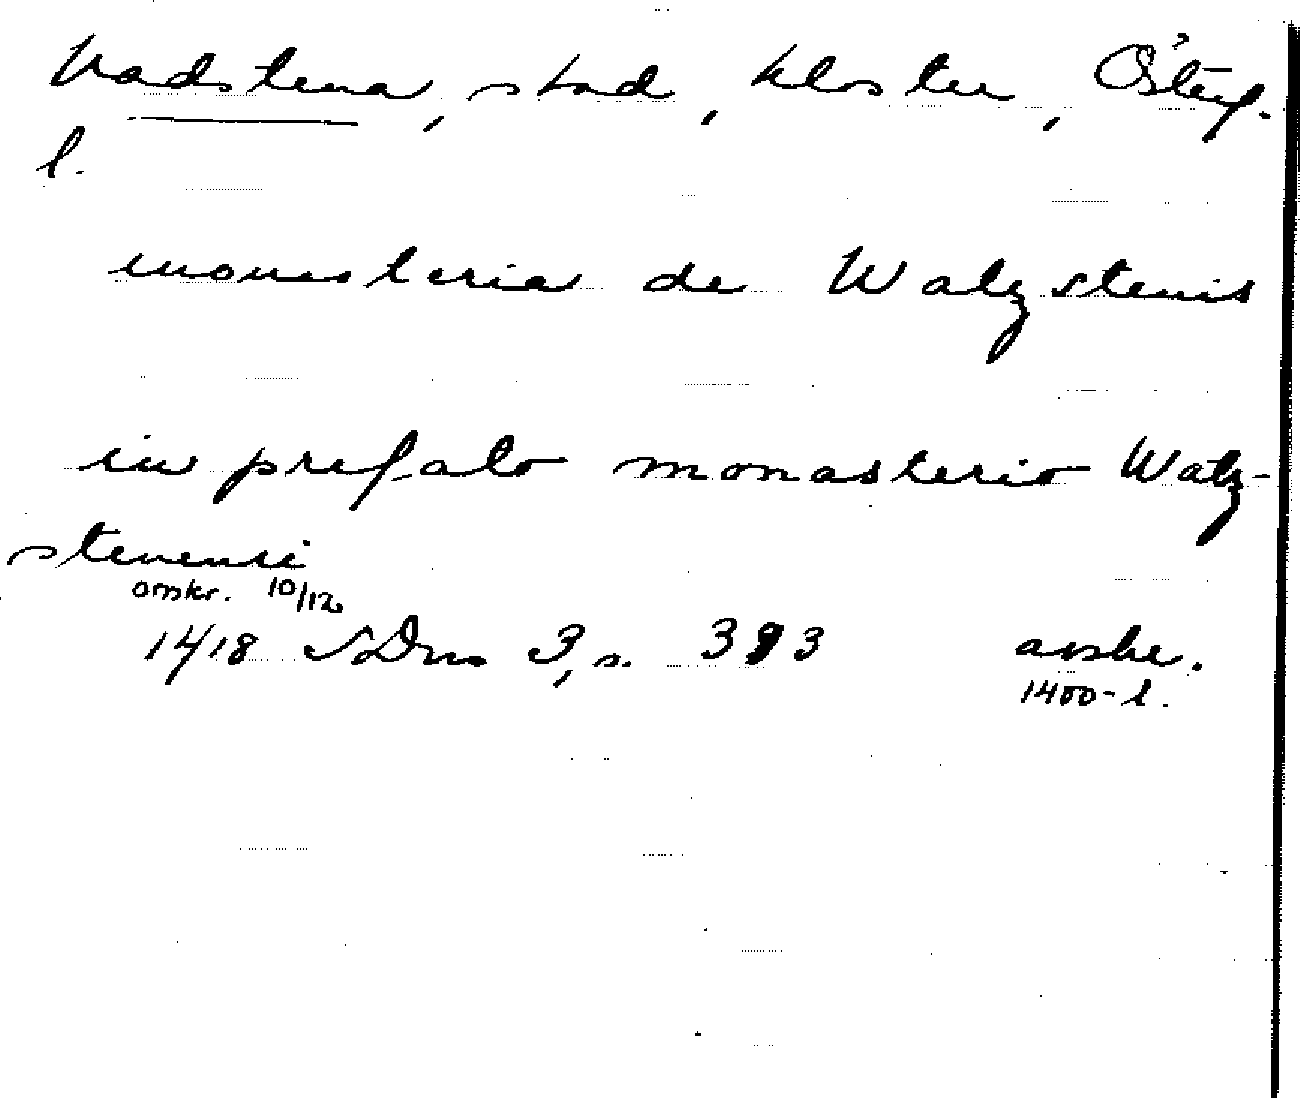 Vadstena, stad, kloster, Östergl.
l.
monasteria de Watzstenis
in prefato monasterio Watz-
stenensi
omskr. 10/12
1418 SDns 3, s. 393 avskr.
1400-t.